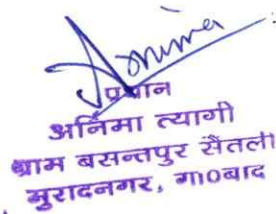 Anima
प्रधान
अनिमा त्यागी
ग्राम बसन्तपुर सैंतली
मुरादनगर, गा०बाद